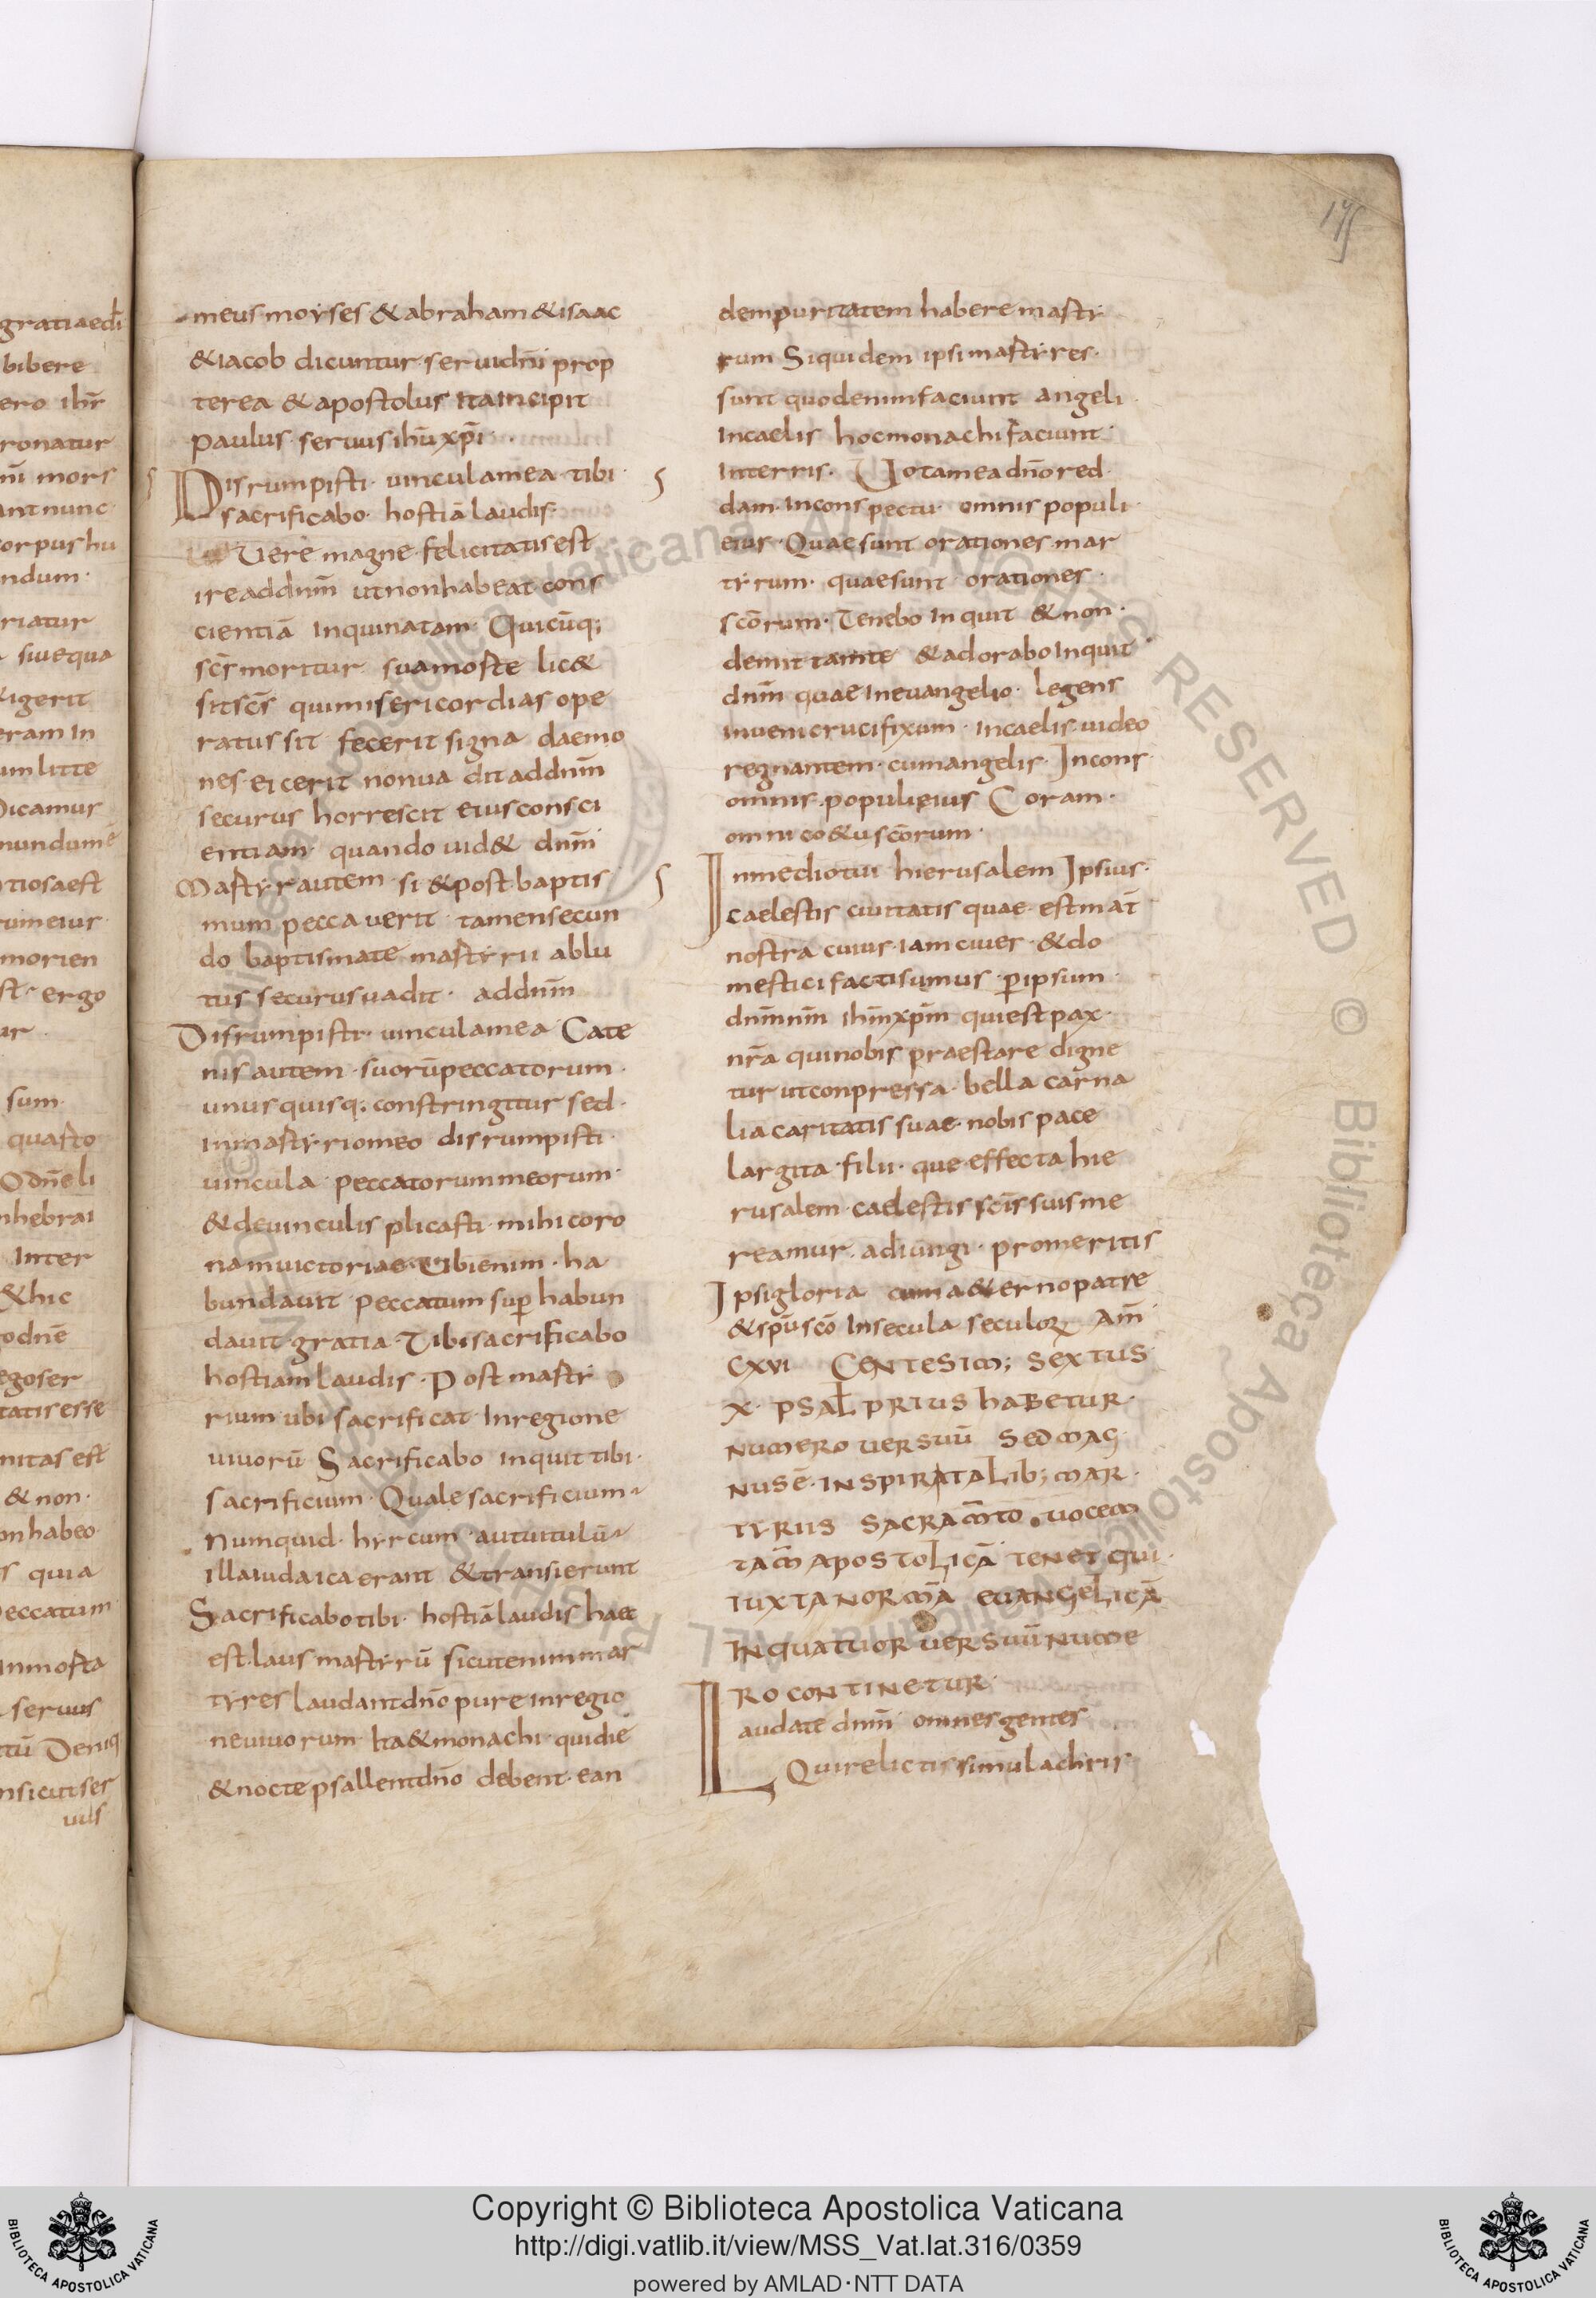 gratiaedi
bibere
ero ihs
ronatur
ni mors
ant nunc
corpus hu
ndum
riatur
siuequa
igerit
eram in
um litte
Dicamus
mundum ē
tiosaest
rum eius
morien
st ergo
ur
sum
quasto
Odn̄e li
nhebrai
Inter
&hic
odnē
egoser
tatisesse
nitas est
& non
onhabeo
s quia
peccatum
Inmosta
seruus
tū Deniq
nsicutser
uus
175
meus moyses & abraham & isaac
& iacob dicuntur serui dn̄i prop
terea & apostolus ita incipit
paulus seruus ihū xp̄i
Disrumpisti uincula mea tibi
sacrificabo hostiā laudis
Vere magne felicitatis est
ire ad dnm̄ ut non habeat cons
cientiā inquinatam Quicūq;
sc̄s moritur sua moste lic&
sit sc̄s qui misericordias ope
ratus sit fecerit signa daemo
nes eicerit non uadit ad dnm̄
securus horrescit eius consci
entiam quando uid& dnm̄
Mastyr autem si & post baptis
mum peccauerit tamen secun
do baptismate mastyrii ablu
tus securus uadit ad dnm̄
Disrumpisti uincula mea Cate
nis autem suorū peccatorum
unusquisq; constringitur sed
in mastyrio meo disrumpisti
uincula peccatorum meorum
& de uinculis plicasti mihi coro
nam uictoriae Ubi enim ha
bundauit peccatum sup̄ habun
dauit gratia Tibi sacrificabo
hostiam laudis Post masty
rium ubi sacrificat In regione
uiuorū Sacrificabo inquit tibi
sacrificium Quale sacrificium
Numquid hyrcum aut uitulū
illa iudaica erant & transierunt
Sacrificabo tibi hostiā laudis haec
est laus mastyrū sicut enim mar
tyres laudant dn̄o pure in regio
ne uiuorum Ita & monachi qui die
& nocte psallent dn̄o debent ean
dem puritatem habere masty
rum Siquidem ipsi mastyres
sunt quod enim faciunt angeli
In caelis hoc monachi faciunt
In terris Uota mea dn̄o red
dam in conspectu omnis populi
eius Quae sunt orationes mar
tyrum quae sunt orationes
sc̄orum Tenebo inquit & non
demittam te & adorabo inquit
dnm̄ quae in euangelio legens
inueni crucifixum in caelis uideo
regnantem cum angelis In cons
omnis populi eius Coram
omni co&u sc̄orum
In medio tui hierusalem Ipsius
caelestis ciuitatis quae est mat̄
nostra cuius iam ciues & do
mestici facti sumus p̄ ipsum
dnm̄ nm̄ ihm̄ xpm̄ qui est pax
nr̄a qui nobis praestare digne
tur ut conpressa bella carna
lia caritatis suae nobis pace
largita filii que effecta hie
rusalem caelestis sc̄is suis me
reamur adiungi promeritis
Ipsi gloria cum a&erno patre
& spū sc̄o In secula seculoꝝ Am̄
CXVI CENTESIM; SEXTUS
X PSAL PRIUS HABETUR
NUMERO UERSUŪ SED MAG
NUS Ē INSPIRATALIB; MAR
TYRIIS SACRAM̄TO UOCEM
TAM̄ APOSTOLICĀ TENET QUI
IUXTA NORMĀ EUANGELICĀ
IN QUATTUOR UERSUŪ NUME
RO CONTINETUR
Laudate dnm̄ omnes gentes
Qui relictis simulachris
© Biblioteca Apostolica Vaticana ALL RIGHTS RESERVED
Copyright © Biblioteca Apostolica Vaticana
http://digi.vatlib.it/view/MSS_Vat.lat.316/0359
powered by AMLAD·NTT DATA
BIBLIOTECA APOSTOLICA VATICANA
BIBLIOTECA APOSTOLICA VATICANA